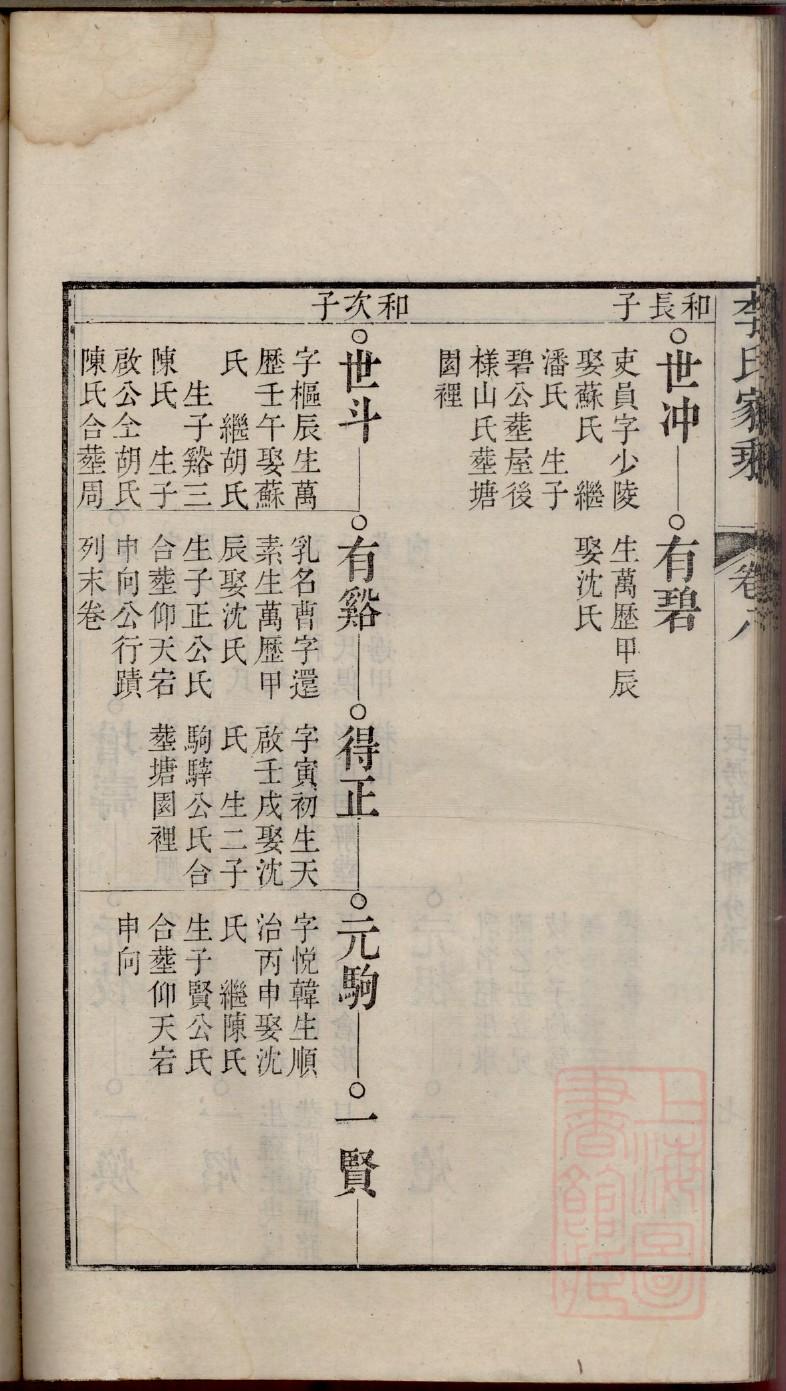 李氏家乘
卷八
和長子
世冲
吏員字少陵
娶蘇氏 繼
潘氏 生子
碧公塟屋後
樣山氏塟塘
園裡
有碧
生萬歷甲辰
娶沈氏
和次子
世斗
字樞辰生萬
歷壬午娶蘇
氏 繼胡氏
生子谿三
陳氏 生子
啟公仝胡氏
陳氏合塟周
有谿
乳名曹字還
素生萬歷甲
辰娶沈氏
生子正公氏
合塟仰天宕
申向公行蹟
列末卷
得正
字寅初生天
啟壬戌娶沈
氏 生二子
駒騂公氏合
塟塘園裡
元駒
字悅韓生順
治丙申娶沈
氏 繼陳氏
生子賢公氏
合塟仰天宕
申向
一賢
上海圖
書館藏